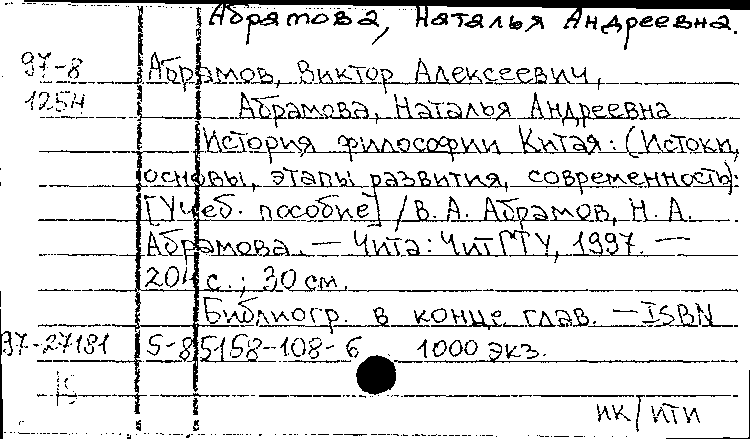 Абрамова, Наталья Андреевна.
97-8 Абрамов, Виктор Алексеевич,
1254 Абрамова, Наталья Андреевна
История философии Китая: (Истоки,
основы, этапы развития, современность):
[Учеб. пособие] / В. А. Абрамов, Н. А.
Абрамова. — Чита: ЧитГТУ, 1997. —
204 с.; 30 см.
Библиогр. в конце глав. — ISBN
97-27181 5-85158-108-6 1000 экз.
ИК/ИТИ